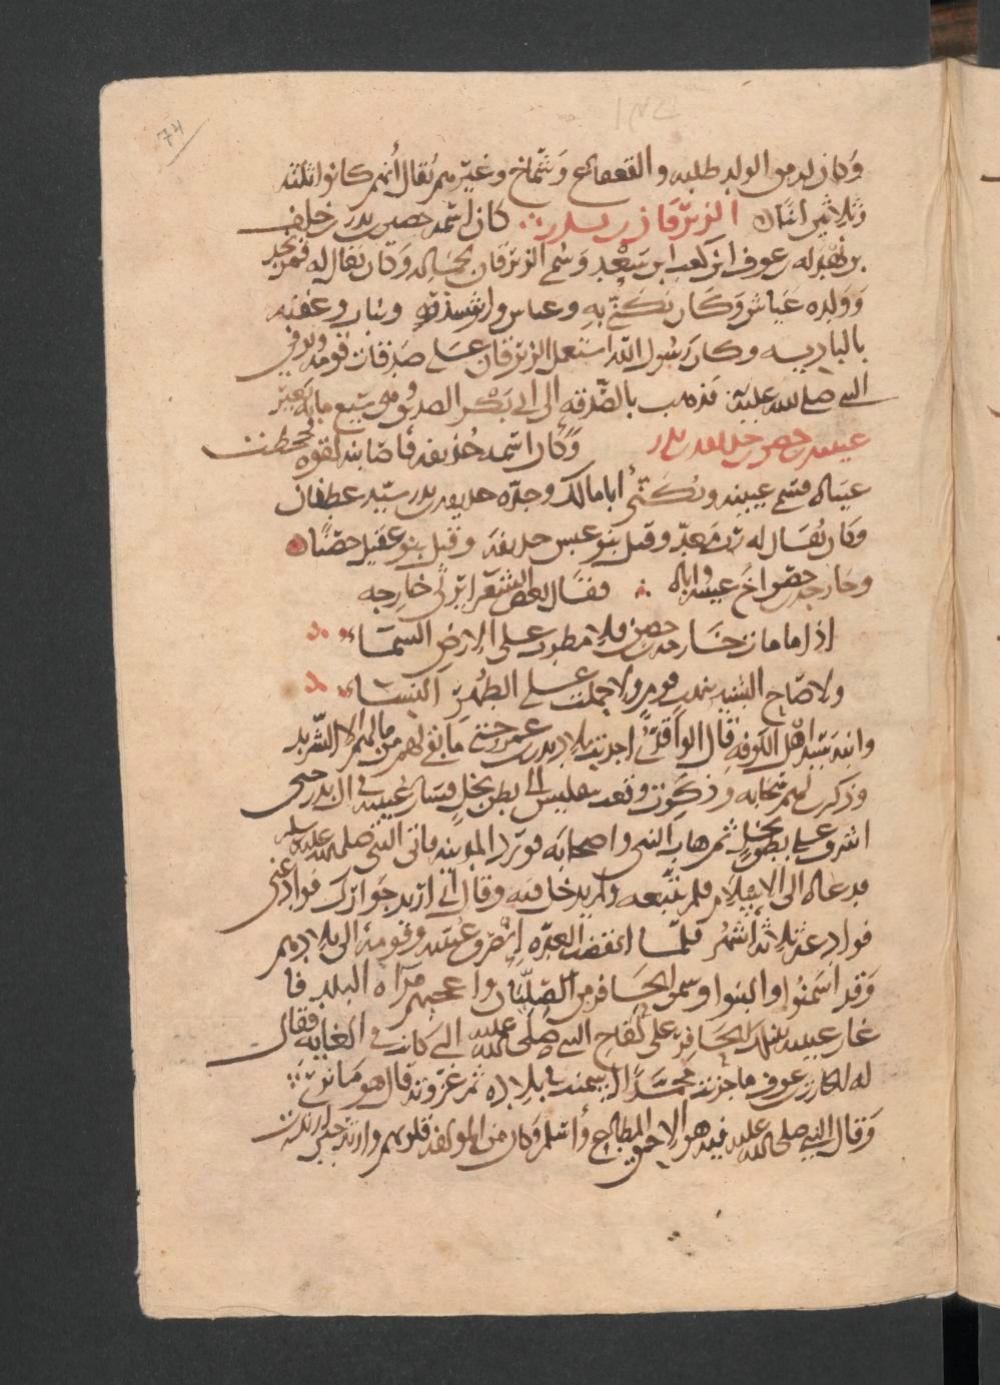 وكان له من الولد طلبه والقعقاع وشماخ وغيرهم يقال أنهم كانوا ثلثه
وثلاثين انسان الزبرقان بن بدر كان اسمه حصين بدر بن خلف
بن بهدله بن عوف ابن كعب ابن سعد وسمي الزبرقان بجماله وكان يقال له قمر نجد
وولده عياش وكان يكنى به وعباس و وبنان و
بالباديه وكان رسول الله استعمل الزبرقان على صدقات قومه وتوفي
النبي صلى الله عليه فذهب بالصدقه الى ابي بكر الصديق وهي سبع مايه بعير
عيينه بن حصن بن حذيفه بن بدر وكان اسمه حذيفه فاصابته لقوه فجحظت
عيناه فسمي عيينه ويكنى أبا مالك وجده حذيفه بن بدر سيد غطفان
وكان يقال له رب معد وقتل بنو عبس حذيفه وقتل بنو عقيل حصنا
وخارجه بن حصن اخ عيينه واياه فقال بعض الشعرا يرثى خارجه
اذا ما مات خارجه بن حصن فلا مطرت على الارض السما
ولا صاح البشير قوم ولا حملت على الطهر النسا
وابنه سيد اهل الكوفه قال الواقدي اجدبت بلاد بدر بن عمر حتى ما بقي لهم من مالهم الا الشريد
وذكرت لهم سحابه وقعت بتغلمين الى بطن نخل فسار عيينه في ال بدر حتى
اشرف على بطن نخل ثم هاب النبي واصحابه فورد المدينه فاتى النبي صلى الله عليه وسلم
فدعاه الى الاسلام فلم يتبعه ولم يدخل فيه وقال اني اريد جوارك فوادعني
فوادعه ثلاثه أشهر فلما انقضت العده انصرف عيينه وقومه الى بلادهم
وقد اسمنوا والبنوا وسمن الحافر من الصليان واعجبهم مراه البلد فا
غار عيينه بذلك الحافر على لقاح النبي صلى الله عليه التي كانت في الغابه فقال
له الحارث بن عوف ما جزيت محمدا اسمنت في بلاده ثم غزوته قال هو ما ترى
وقال النبي صلى الله عليه فيه هو الاحمق المطاع وأسلم وكان من المولفه قلوبهم وارتد حين ارتدت